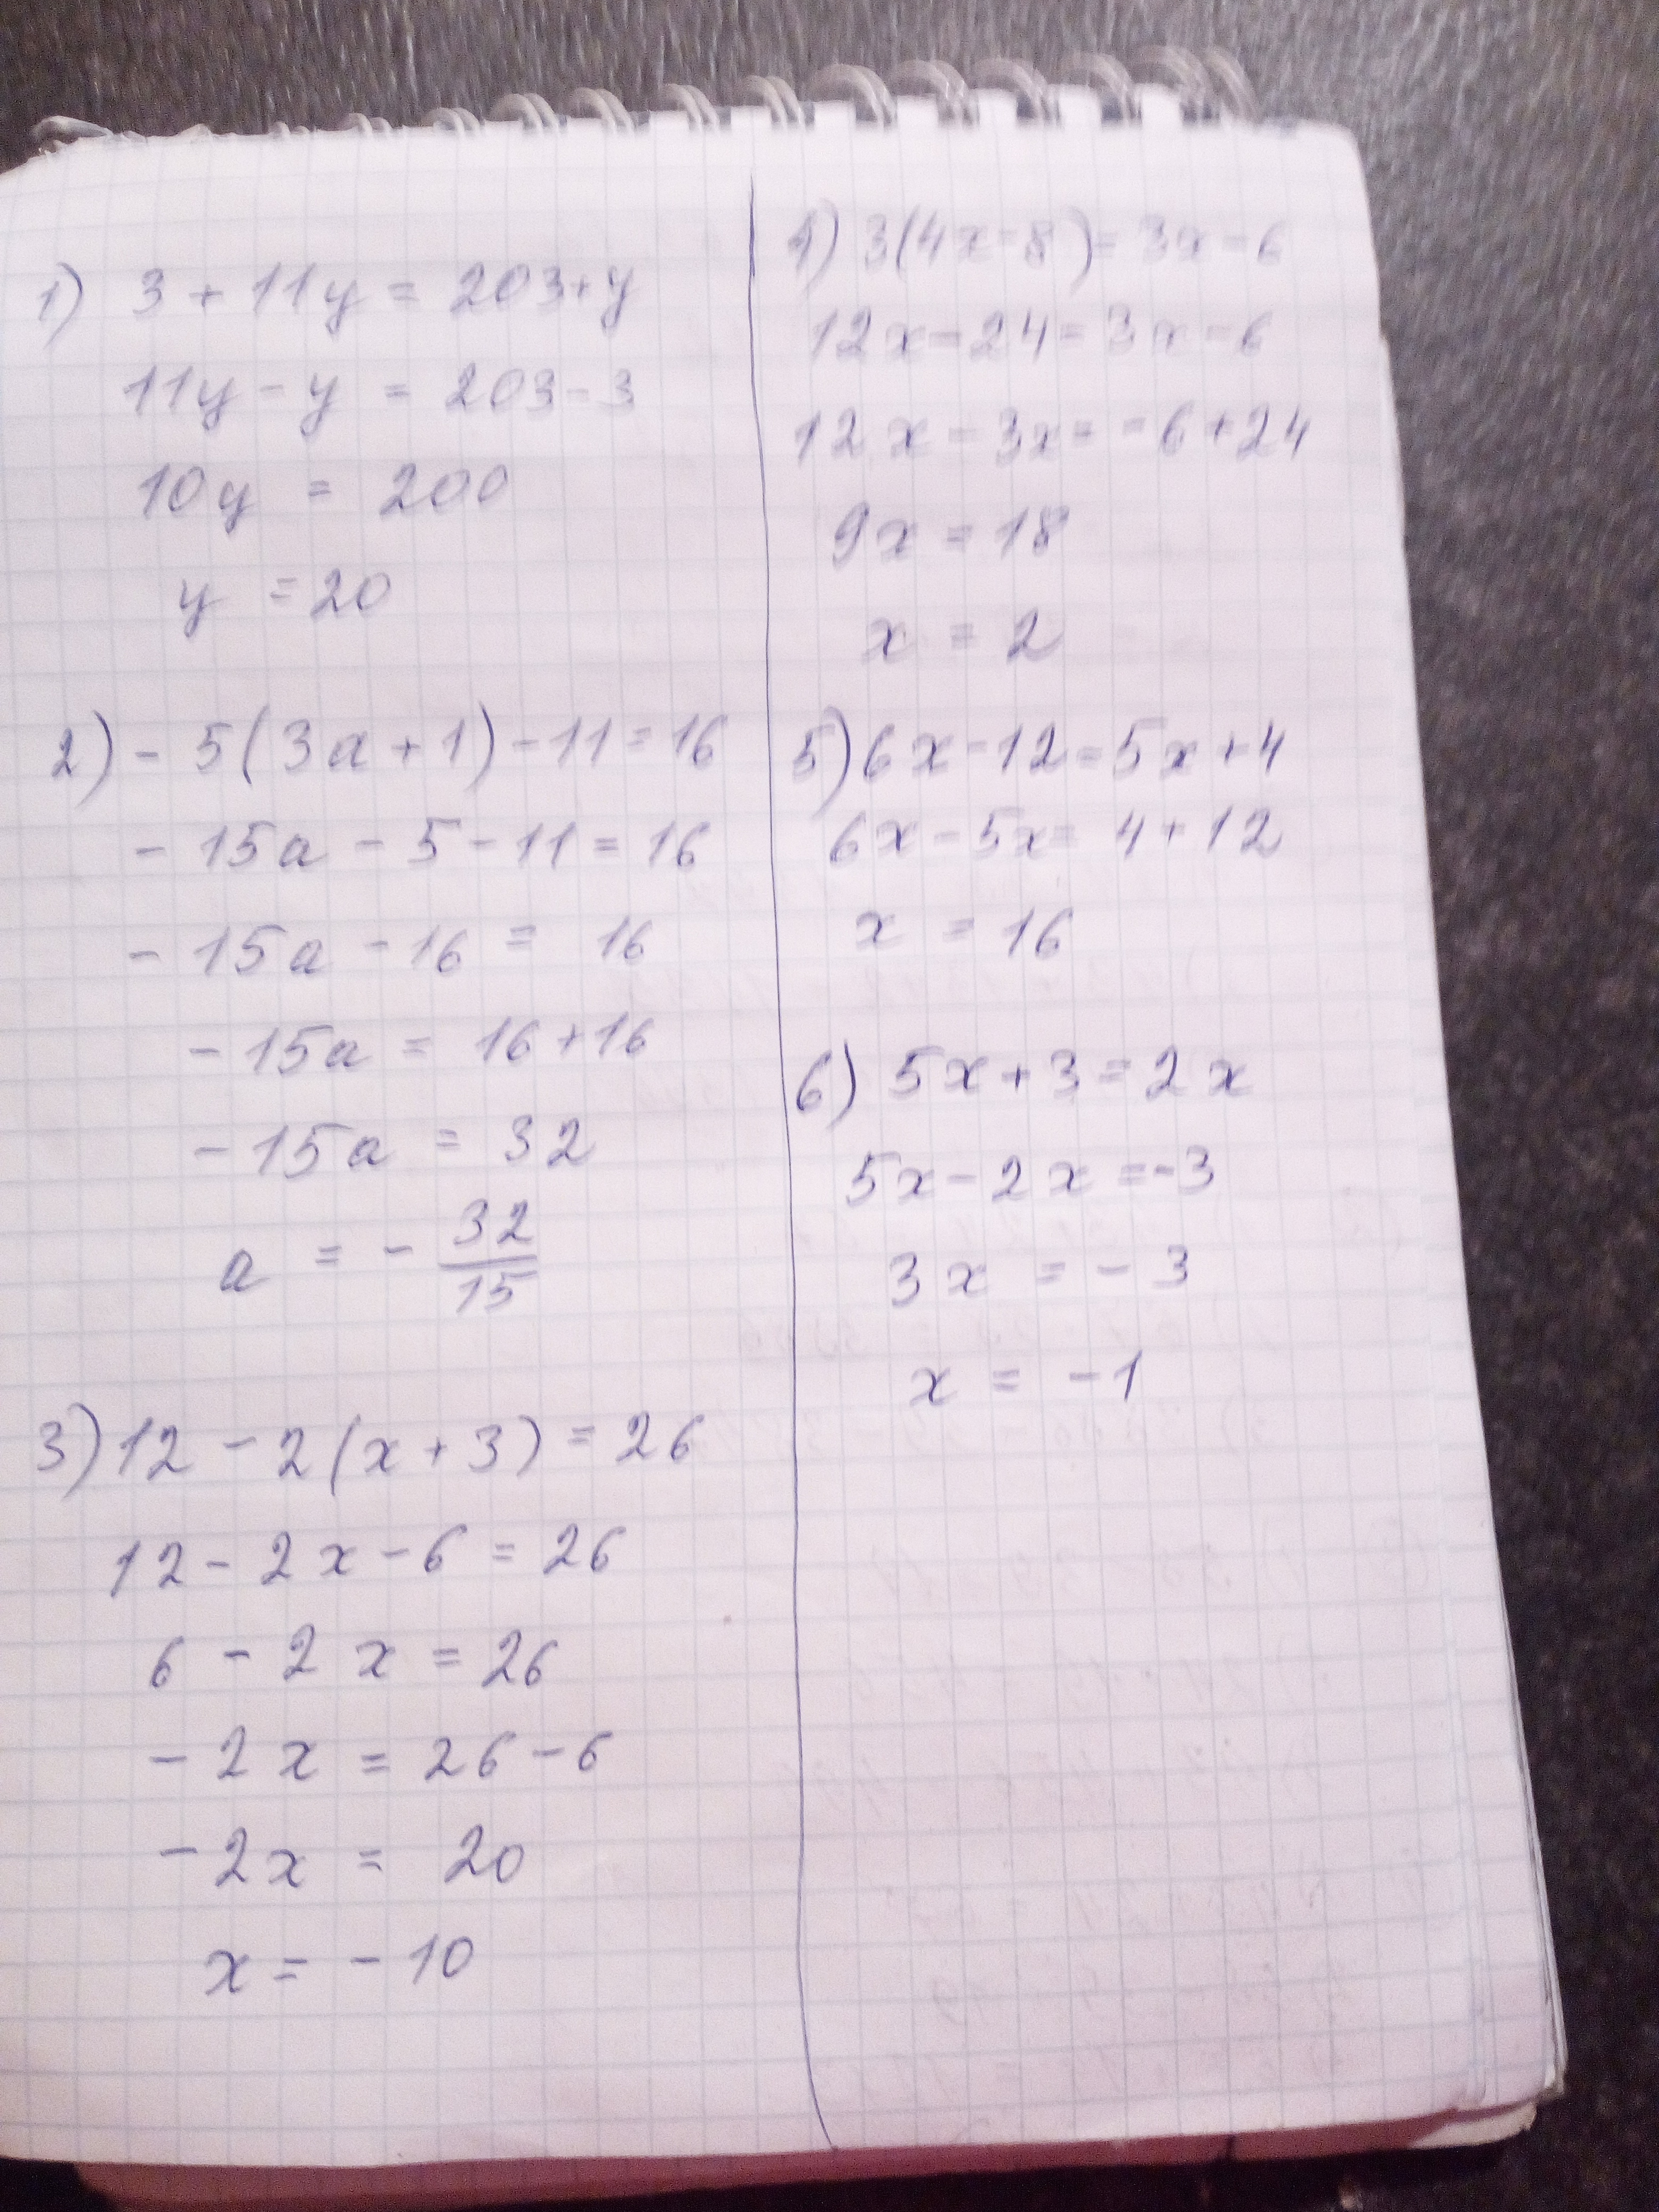 1) 3 + 11y = 203+y
11y - y = 203-3
10y = 200
y = 20
2) - 5(3a+1)-11=16
- 15a - 5 - 11 = 16
- 15a - 16 = 16
- 15a = 16+16
- 15a = 32
a = - 32/15
3) 12 - 2(x+3) = 26
12 - 2x - 6 = 26
6 - 2x = 26
- 2x = 26-6
- 2x = 20
x = - 10
4) 3(4x-8)= 3x-6
12x-24=3x-6
12x - 3x= -6+24
9x = 18
x = 2
5) 6x-12=5x+4
6x-5x= 4+12
x = 16
6) 5x+3=2x
5x-2x=-3
3x = -3
x = -1